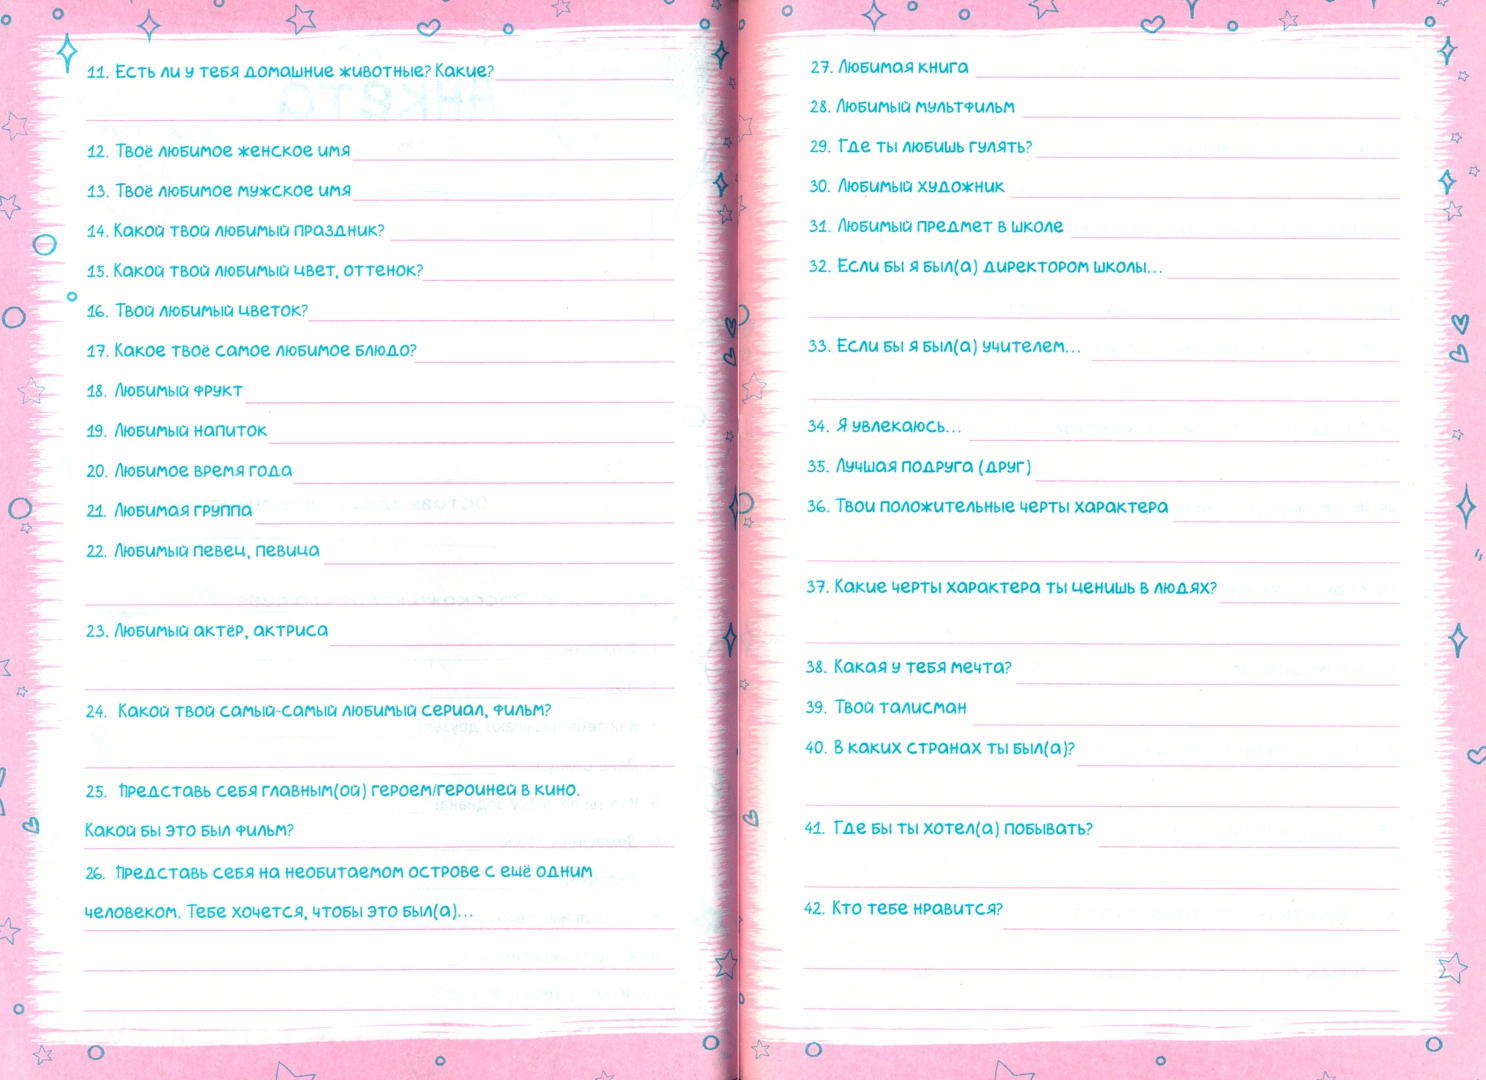 11. Есть ли у тебя домашние животные? Какие?
12. Твоё любимое женское имя
13. Твоё любимое мужское имя
14. Какой твой любимый праздник?
15. Какой твой любимый цвет, оттенок?
16. Твой любимый цветок?
17. Какое твоё самое любимое блюдо?
18. Любимый фрукт
19. Любимый напиток
20. Любимое время года
21. Любимая группа
22. Любимый певец, певица
23. Любимый актёр, актриса
24. Какой твой самый-самый любимый сериал, фильм?
25. Представь себя главным(ой) героем/героиней в кино.
Какой бы это был фильм?
26. Представь себя на необитаемом острове с ещё одним
человеком. Тебе хочется, чтобы это был(а)...
27. Любимая книга
28. Любимый мультфильм
29. Где ты любишь гулять?
30. Любимый художник
31. Любимый предмет в школе
32. Если бы я был(а) директором школы...
33. Если бы я был(а) учителем...
34. Я увлекаюсь...
35. Лучшая подруга (друг)
36. Твои положительные черты характера
37. Какие черты характера ты ценишь в людях?
38. Какая у тебя мечта?
39. Твой талисман
40. В каких странах ты был(а)?
41. Где бы ты хотел(а) побывать?
42. Кто тебе нравится?